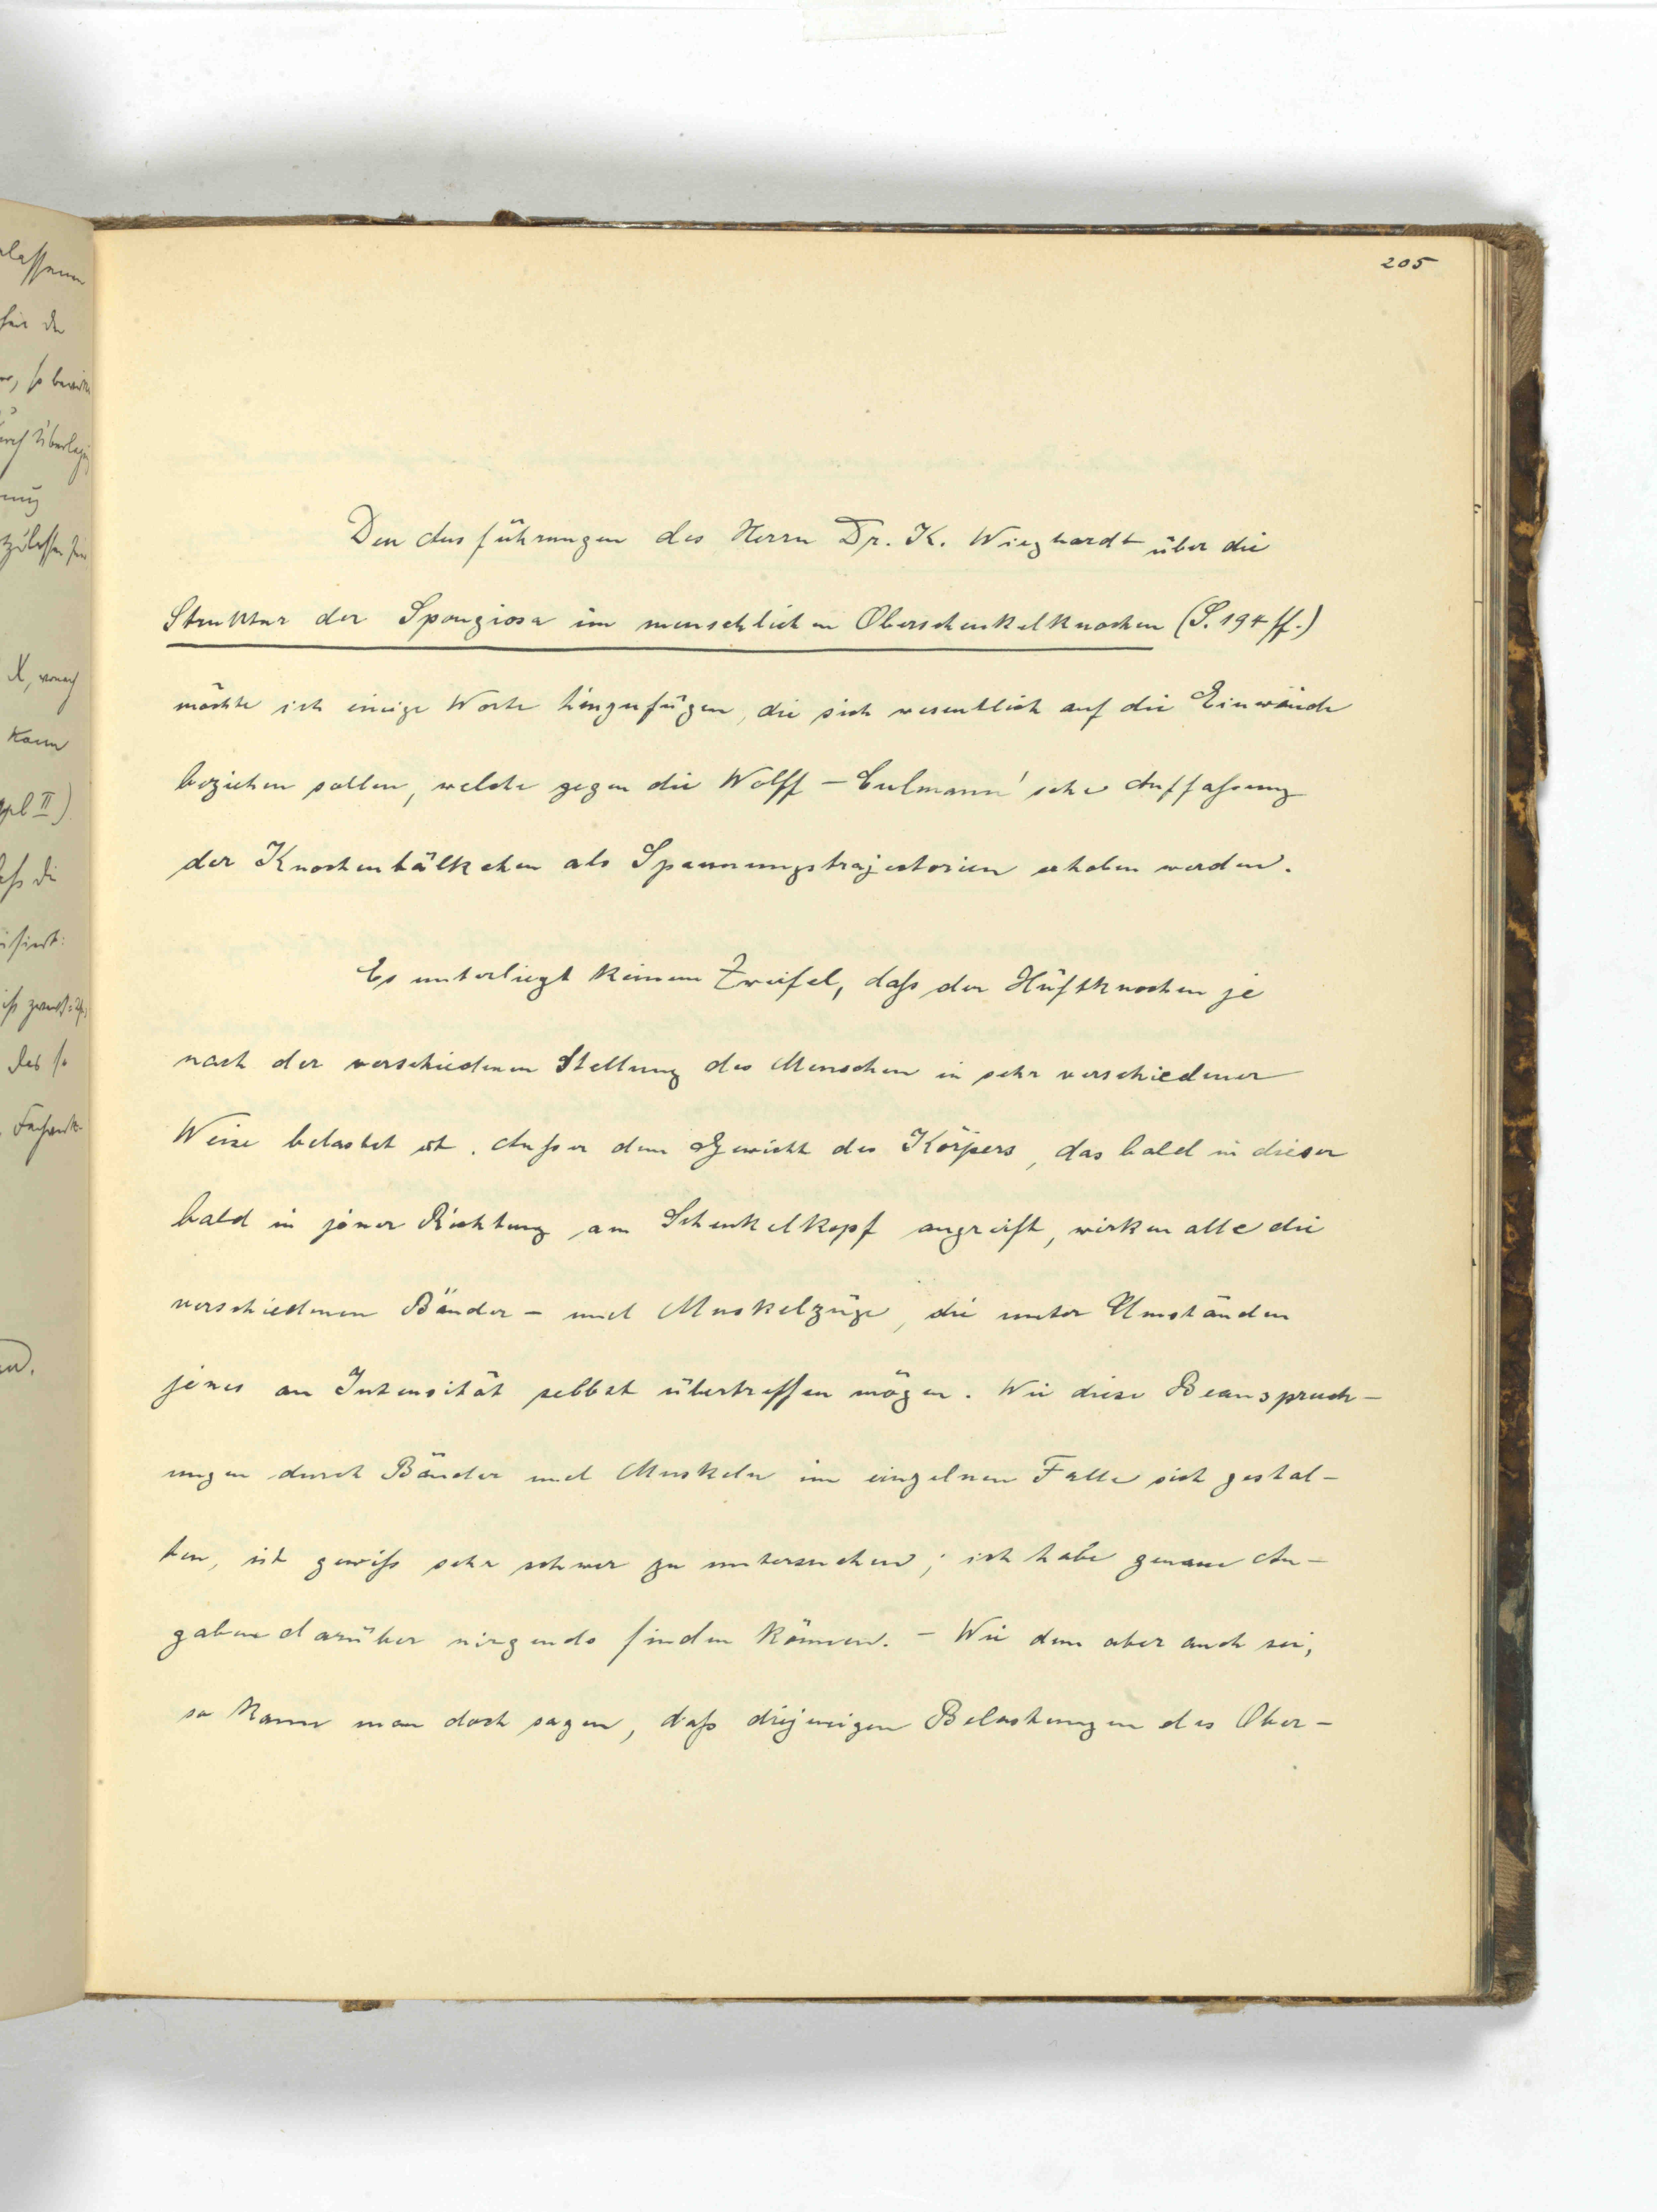 205
Den Ausführungen des Herrn Dr. K. Wieghardt über die
Struktur der Spongiosa im menschlichen Oberschenkelknochen (S. 194 ff.)
möchte ich einige Worte hinzufügen, die sich wesentlich auf die Einwände
beziehen sollen, welche gegen die Wolff-Culmann'sche Auffaßung
der Knochenbälkchen als Spannungstrajectorien erhoben werden.
Es unterliegt keinem Zweifel, daß der Hüftknochen je
nach der verschiedenen Stellung des Menschen in sehr verschiedener
Weise belastet ist. Außer dem Gewicht des Körpers, das bald in dieser
bald in jener Richtung am Schenkelkopf angreift, wirken alle die
verschiedenen Bänder- und Muskelzüge, die unter Umständen
jenes an Intensität selbst übertreffen mögen. Wie diese Beanspruch-
ungen durch Bänder und Muskeln im einzelnen Falle sich gestal-
ten, ist gewiß sehr schwer zu untersuchen; ich habe genaue An-
gaben darüber nirgends finden können. - Wie dem aber auch sei,
so kann man doch sagen, daß diejenigen Belastungen des Ober-
kann
Fachwerk-